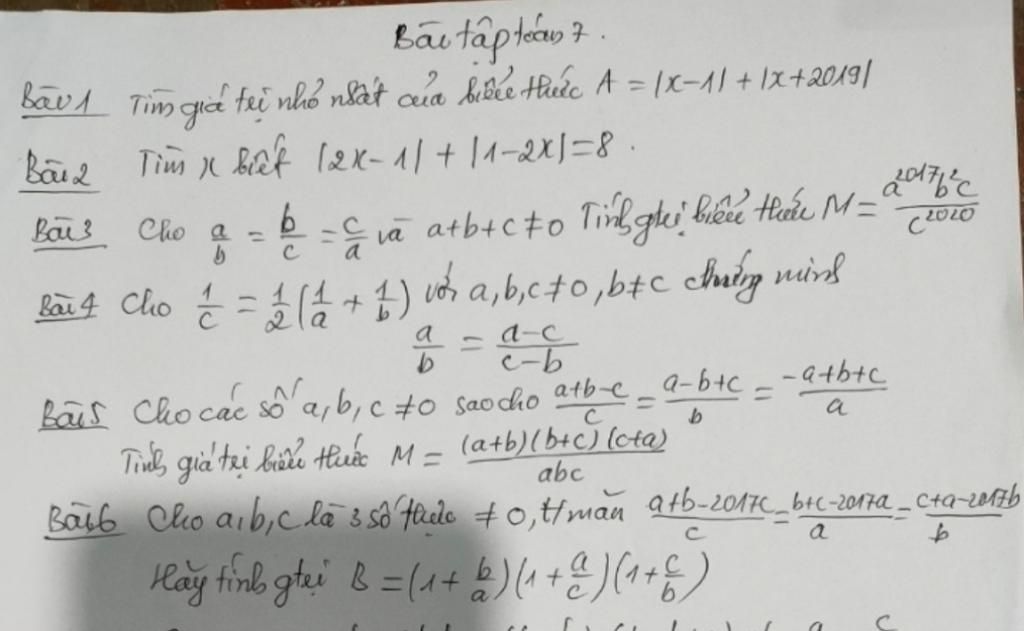 Bài tập toán 7.
Bài 1 Tìm giá trị nhỏ nhất của biểu thức A = |x-1| + |x+2019|
Bài 2 Tìm x biết |2x-1| + |1-2x| = 8.
Bài 3 Cho a/b = b/c = c/a và a+b+c ≠ 0 Tính gtrị biểu thức M = a^2017 b^2 c / c^2020
Bài 4 Cho 1/c = 1/2 (1/a + 1/b) với a, b, c ≠ 0, b ≠ c chứng minh
a/b = (a-c)/(c-b)
Bài 5 Cho các số a, b, c ≠ 0 sao cho (a+b-c)/c = (a-b+c)/b = (-a+b+c)/a
Tính giá trị biểu thức M = (a+b)(b+c)(c+a)/abc
Bài 6 Cho a, b, c là 3 số thực ≠ 0, t/mãn (a+b-2017c)/c = (b+c-2017a)/a = (c+a-2017b)/b
Hãy tính gtrị B = (1 + b/a)(1 + a/c)(1 + c/b)